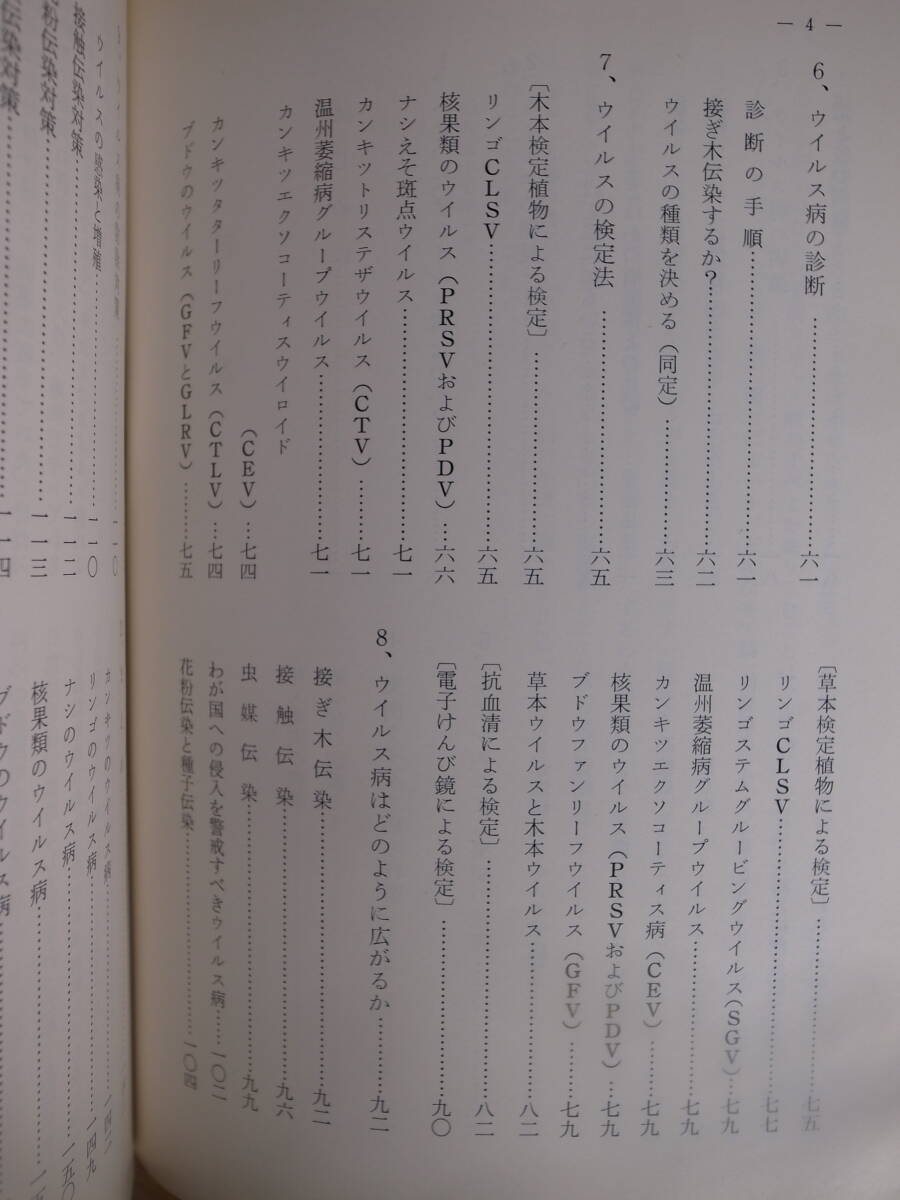 ― 4 ―
6、ウイルス病の診断……………………六一
診断の手順……………………六一
接ぎ木伝染するか？……………………六二
ウイルスの種類を決める（同定）…………六三
7、ウイルスの検定法……………………六五
〔木本検定植物による検定〕……………………六五
リンゴCLSV……………………六五
核果類のウイルス（PRSVおよびPDV）…六六
ナシえそ斑点ウイルス……………………七一
カンキツトリステザウイルス（CTV）………七一
温州萎縮病グループウイルス……………………七一
カンキツエクソコーティスウイロイド
（CEV）…七四
カンキツタターリーフウイルス（CTLV）…七四
ブドウのウイルス（GFVとGLRV）………七五
〔草本検定植物による検定〕……………………七五
リンゴCLSV……………………七七
リンゴステムグルービングウイルス（SGV）…七九
温州萎縮病グループウイルス……………………七九
カンキツエクソコーティス病（CEV）………七九
核果類のウイルス（PRSVおよびPDV）…七九
ブドウファンリーフウイルス（GFV）………七九
草本ウイルスと木本ウイルス……………………八二
〔抗血清による検定〕……………………八二
〔電子けんび鏡による検定〕……………………九〇
8、ウイルス病はどのように広がるか…………九二
接ぎ木伝染……………………九二
接触伝染……………………九六
虫媒伝染……………………九九
わが国への侵入を警戒すべきウイルス病……一〇二
花粉伝染と種子伝染……………………一〇四
ウイルスの感染と増殖……………………一一〇
接触伝染対策……………………一一二
粉伝染対策……………………一一三
伝染対策……………………一一四
カンキツのウイルス病
リンゴのウイルス病……………………一四九
ナシのウイルス病……………………一五〇
核果類のウイルス病……………………
ブドウのウイルス病